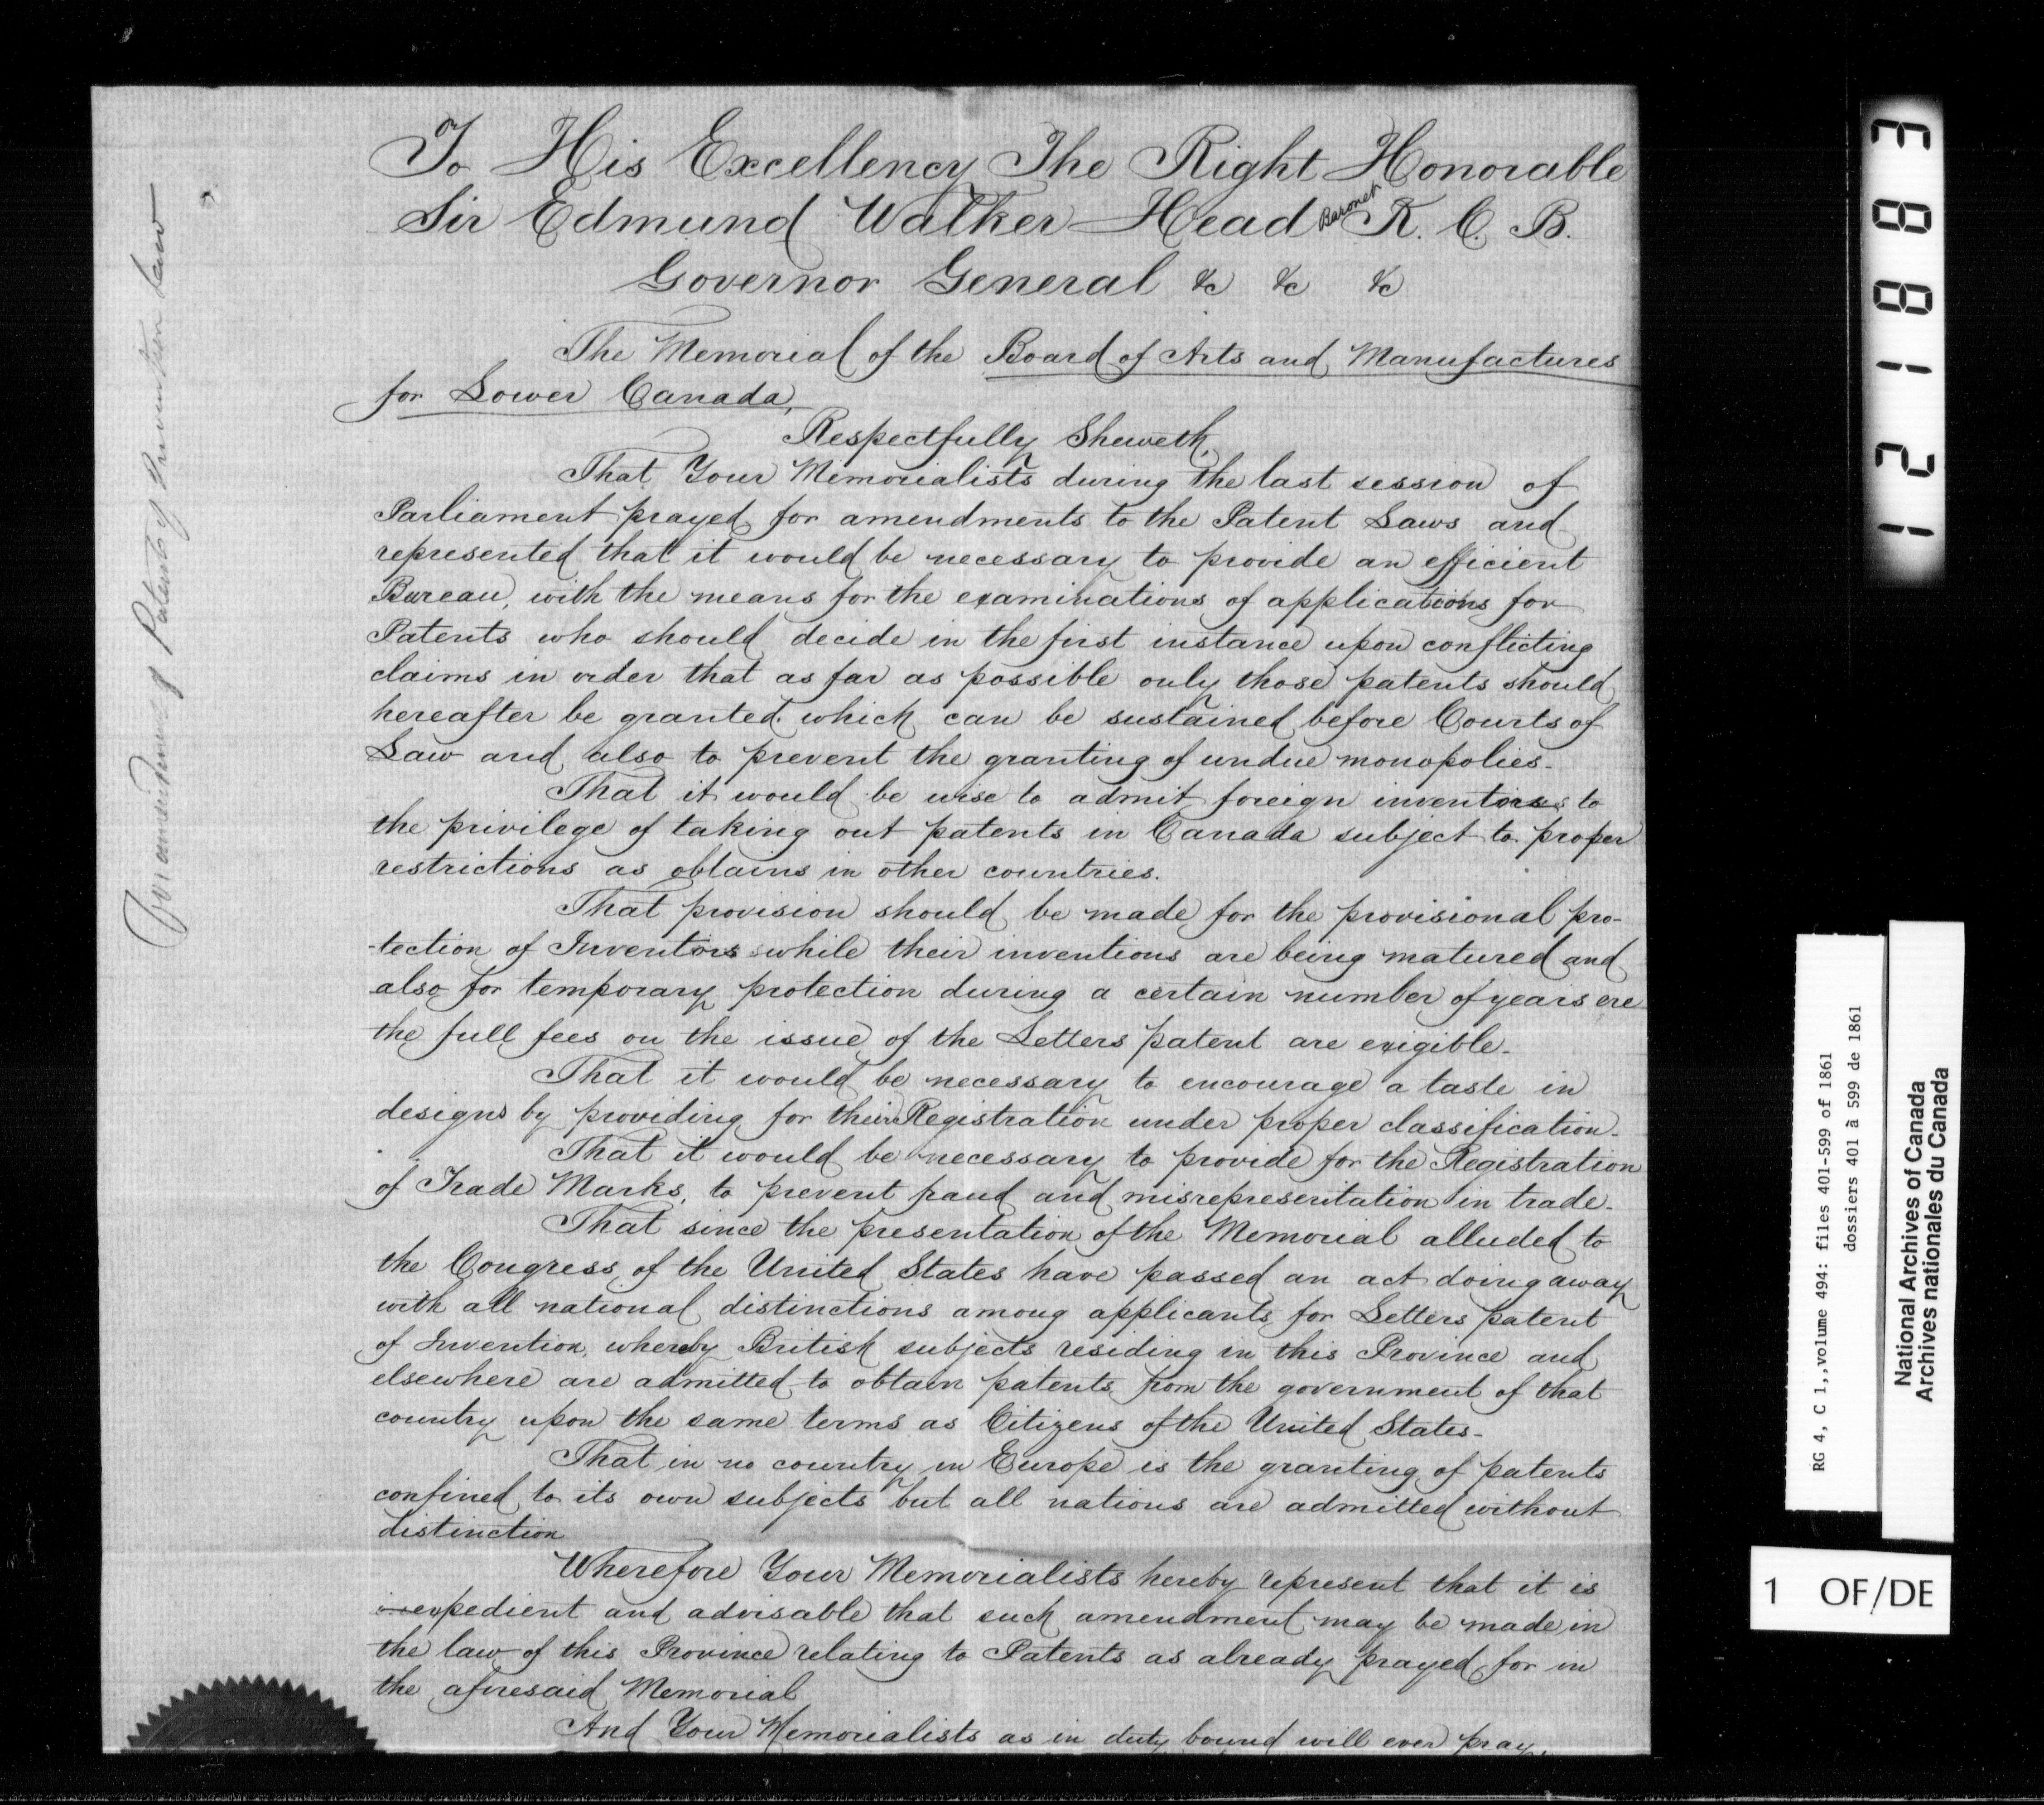 To His Excellency The Right Honorable
Sir Edmund Walker Head Baronet K. C. B.
Governor General &c &c &c
The Memorial of the Board of Arts and Manufactures
for Lower Canada,
Respectfully Sheweth,
That Your Memorialists during the last session of
Parliament prayed for amendments to the Patent Laws and
represented that it would be necessary to provide an efficient
Bureau, with the means for the examinations of applications for
Patents who should decide in the first instance upon conflicting
claims in order that as far as possible only those patents should
hereafter be granted which can be sustained before Courts of
Law and also to prevent the granting of undue monopolies.
That it would be wise to admit foreign inventors to
the privilege of taking out patents in Canada subject to proper
restrictions as obtains in other countries.
That provision should be made for the provisional pro-
-tection of Inventors while their inventions are being matured and
also for temporary protection during a certain number of years ere
the full fees on the issue of the Letters patent are exigible.
That it would be necessary to encourage a taste in
designs by providing for their Registration under proper classification.
That it would be necessary to provide for the Registration
of Trade Marks, to prevent fraud and misrepresentation in trade.
That since the presentation of the Memorial alluded to
the Congress of the United States have passed an act doing away
with all national distinctions among applicants for Letters patent
of Invention, whereby British subjects residing in this Province and
elsewhere are admitted to obtain patents from the government of that
country upon the same terms as Citizens of the United States.
That in no country in Europe is the granting of patents
confined to its own subjects but all nations are admitted without
distinction
Wherefore Your Memorialists hereby represent that it is
expedient and advisable that such amendment may be made in
the law of this Province relating to Patents as already prayed for in
the aforesaid Memorial
And Your Memorialists as in duty bound will ever pray.
For amendment of Patents of Invention Law
121883
RG 4, C 1,,volume 494: files 401-599 of 1861
dossiers 401 à 599 de 1861
National Archives of Canada
Archives nationales du Canada
1 OF/DE